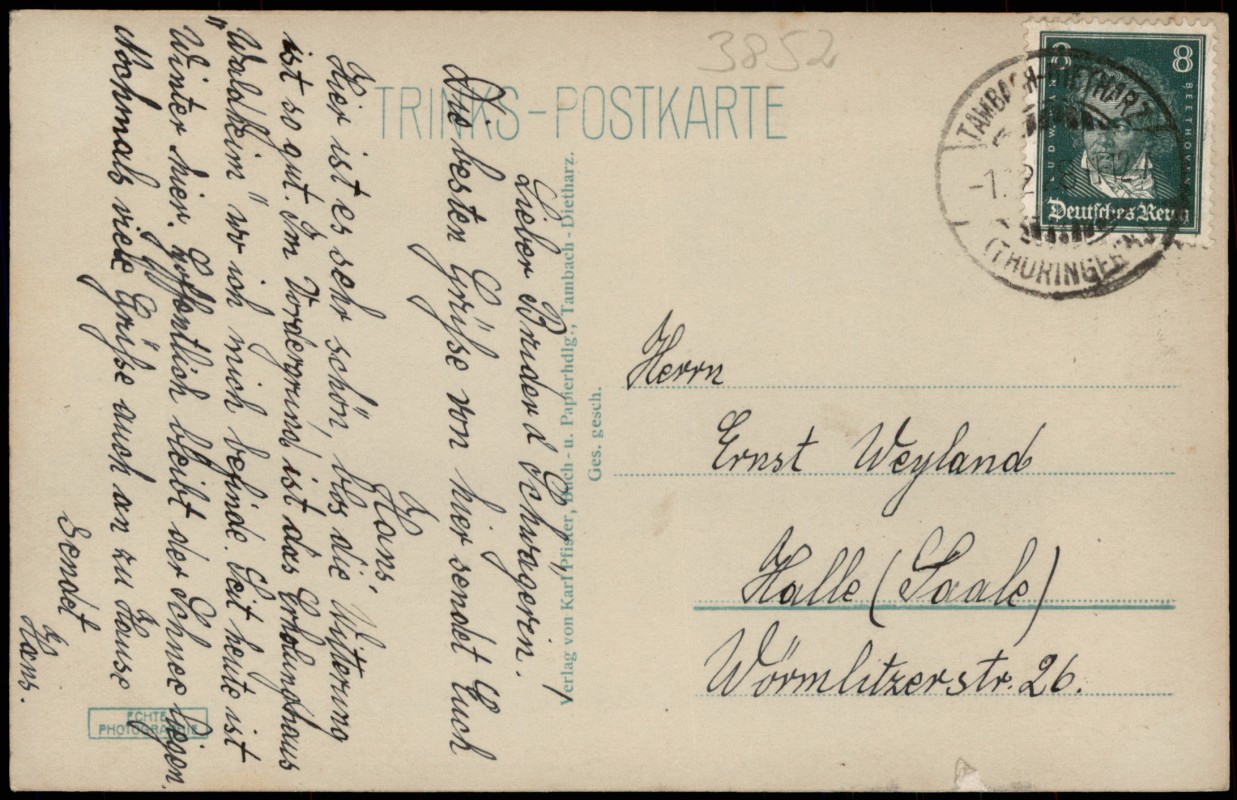 3852
TRINKS-POSTKARTE
8 8
LUDWIG VAN BEETHOVEN
Deutsches Reich
TAMBACH-DIETHARZ
(THÜRINGER
Lieber Bruder u Schwägerin.
Die besten Grüße von hier sendet Euch
Hans,
Hier ist es sehr schön, blos die Witterung
ist so gut. Im Vordergrund ist das Erholungshaus
"Waldheim" wo ich mich befinde. Seit heute ist
Winter hier. Hoffentlich bleibt der Schnee liegen.
Nochmals viele Grüße auch an zu Hause
Sendet
Hans.
Verlag von Karl Pfister, Buch- u. Papierhdlg., Tambach-Dietharz.
Ges. gesch.
Herrn
Ernst Weyland
Halle (Saale)
Wörmlitzerstr. 26.
ECHTE
PHOTOGRAPHIE